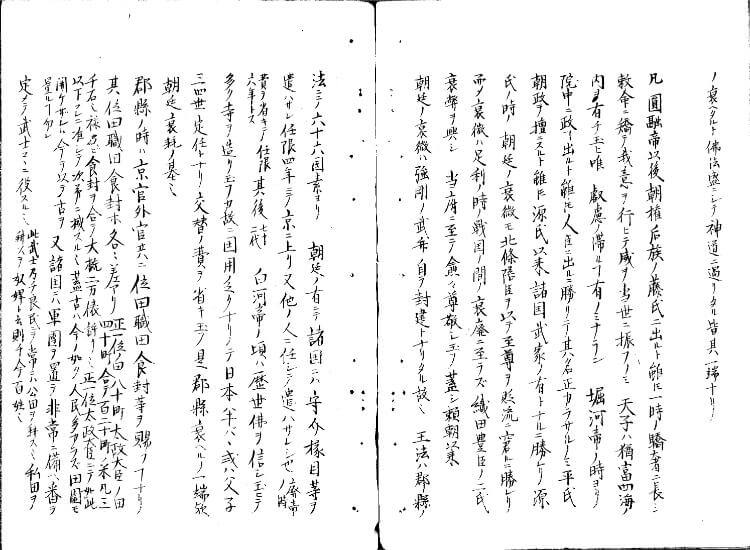 ノ衰タルト佛法盛ニシテ神道ニ過リタル皆其一端ナリ
凡圓融帝以後朝權后族ノ藤氏ニ出ト雖ヒ一時ノ驕奢ニ長シ
敕命ニ矯テ我意ヲ行ヒテ威ヲ当世ニ振フノミ 天子ハ猶富四海ノ
内ヲ有チ玉ヒ唯 叡慮ノ滞ルフ有ノミナラン 堀河帝ノ時ヨリ
院中ニ政ー出ルト雖ヒ人臣ニ出ルニ勝リテ其ハ名正カラサルノミ平氏
朝政ヲ擅ニスト雖ヒ源氏以来諸国武家ノ有トナルニ勝レリ源
氏ノ時 朝廷ノ衰微モ北條陪臣ヲ以テ至尊ヲ貶流ニ窘ムニ勝レリ
而メ衰微ハ足利ノ時ノ戦国ノ間ノ衰廃ニ至ラズ織田豊臣ノ二氏
衰弊ヲ興シ 当府ニ至テ愈々尊敬シ玉フ蓋シ頼朝以来
朝廷ノ衰微ハ強剛ノ武弁自ヲ封建トナリタル故ミ 王法ハ郡縣ノ
法ニテ六十六国素ヨリ 朝廷ノ有ニテ諸国ニハ守介椽目等ヲ
遣ハサレ任限四年ニテ京ニ上リ又他ノ人ニ任シテ遣ハサレシセ 廃帝ノ時
費ヲ省キテノ任限六年トス 其後 七十二代 白河帝ノ頃ハ歴世佛ヲ信シ玉ヒテ
多ク寺ヲ造リ玉フカ故ニ国用久シクナリノテ日本ノ半ハ、或ハ父子
三四世定任トナリノ交替ノ費ヲ省キ玉フ是郡縣衰ヘルノ一端欤
朝廷ノ衰耗ノ基ミ
郡縣ノ時ハ京官外官共ハニ位田職田食封等ヲ賜フフナリ
其位田職田食封本各ミ差アリ 正一位ノ田八十町太政大臣ノ田四十町合テ百二十町ノ米凡三
千石ミ 食封ヲ合テ大抵二万俵許リミ 正一位太政大臣ニテ如此
以下ハミ准シテ次第ニ減スルミ蓋古ハ今ノ如ク人民多アラズ田園モ
開ケサレハ今ヲ以テ古ヲ量ルフ勿レ 又諸国ニハ軍團ヲ置テ非常ニ備ハ番ヲ
定メテ武士コヽニ役スルミ 此武士乃チ良民ニテ常ニハ公田ヲ耕スミ私田ヲ
耕ス者ヲ奴婢ト云則チ今百姓ミ